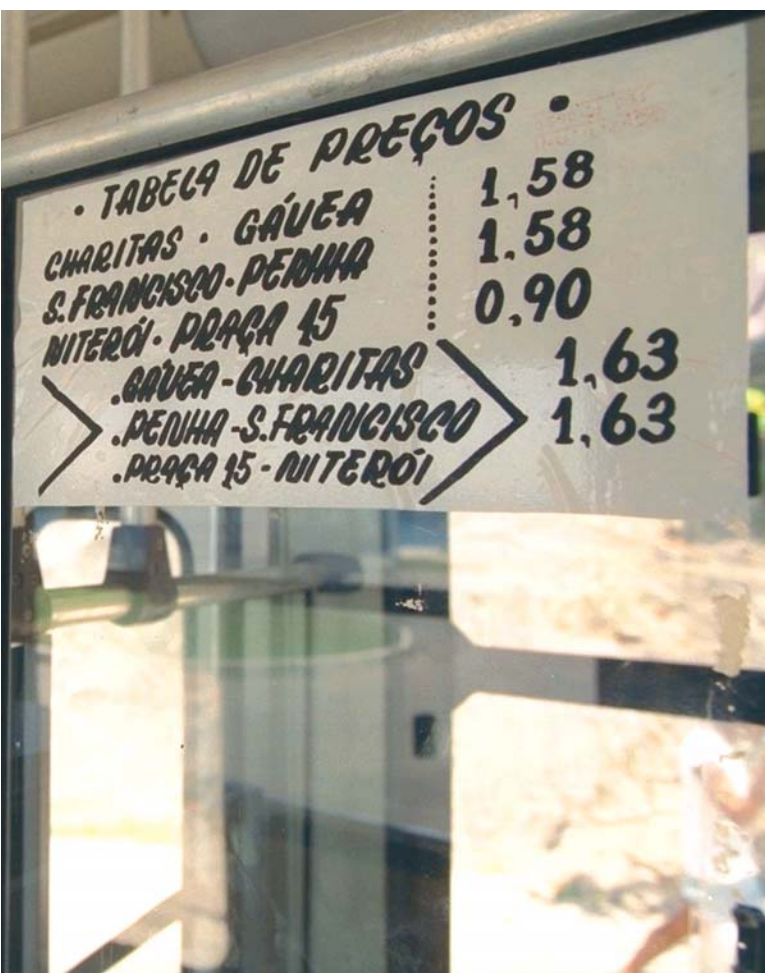 • TABELA DE PREÇOS •
CHARITAS • GÁVEA 1,58
S. FRANCISCO • PENHA 1.58
NITERÓI • PRAÇA 15 0,90
.GÁVEA - CHARITAS 1,63
.PENHA - S. FRANCISCO 1,63
.PRAÇA 15 - NITERÓI